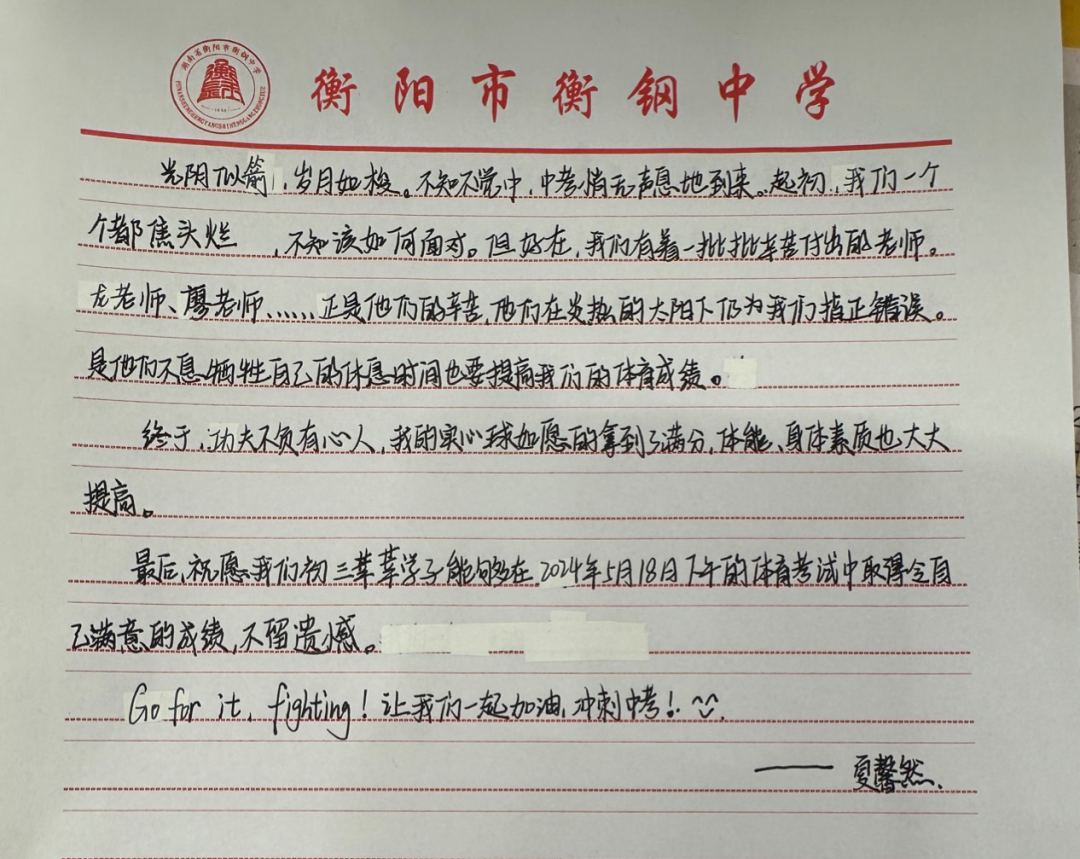 湖南省衡阳市衡钢中学
衡阳市衡钢中学
光阴似箭，岁月如梭。不知不觉中，中考悄无声息地到来。起初，我们一个
个都焦头烂，不知该如何面对。但好在，我们有着一批批辛苦付出的老师。
尤老师、廖老师、……正是他们的辛苦，他们在炎热的太阳下仍为我们指正错误。
是他们不息牺牲自己的休息时间也要提高我们的体育成绩。
终于，功夫不负有心人，我的实心球如愿的拿到了满分，体能、身体素质也大大
提高。
最后，祝愿我们初三莘莘学子能够在2024年5月18日下午的体育考试中取得令自
己满意的成绩，不留遗憾。
Go for it, fighting！让我们一起加油，冲刺中考！
——夏馨然.